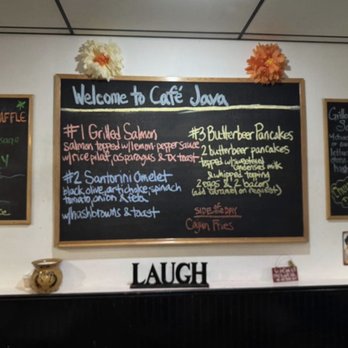 Welcome to Café Java
#1 Grilled Salmon
salmon topped w/lemon pepper sauce
w/rice pilaf, asparagus & tx toast
#2 Santorini Omelet
black olive, artichoke, spinach
tomato, onion & feta
w/hashbrowns & toast
#3 Butterbeer Pancakes
2 butterbeer pancakes
topped w/sweetened
condensed milk
& whipped topping
2 eggs & 2 bacon
(add caramel on request)
SIDE of the DAY
Cajun Fries
LAUGH